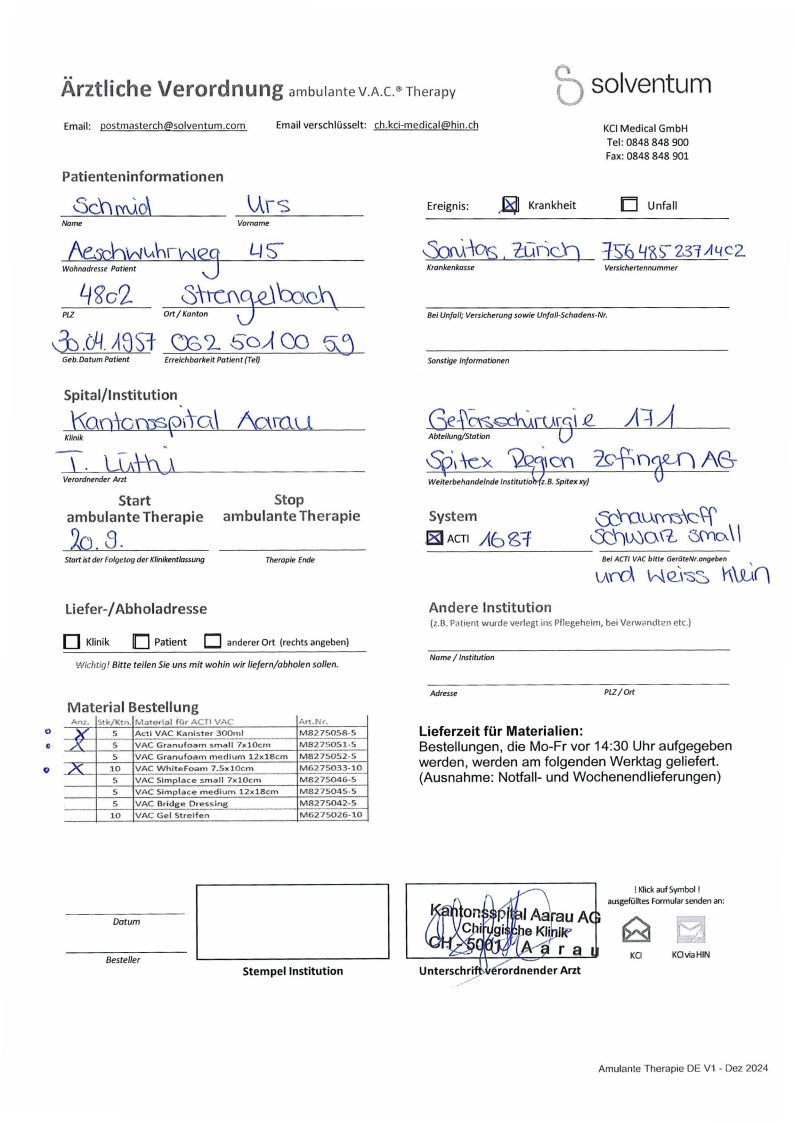 Ärztliche Verordnung ambulante V.A.C.® Therapy
solventum
Email: postmasterch@solventum.com Email verschlüsselt: ch.kci-medical@hin.ch
KCI Medical GmbH
Tel: 0848 848 900
Fax: 0848 848 901
Patienteninformationen
Schmid Urs
Name Vorname
Ereignis: Krankheit Unfall
Aeschwuhrweg 45
Wohnadresse Patient
Sanitas, Zürich 756 485 2371402
Krankenkasse Versichertennummer
4802 Strengelbach
PLZ Ort / Kanton
Bei Unfall; Versicherung sowie Unfall-Schadens-Nr.
30.04.1957 062 501 00 59
Geb.Datum Patient Erreichbarkeit Patient (Tel)
Sonstige Informationen
Spital/Institution
Kantonsspital Aarau
Klinik
Gefässchirurgie 171
Abteilung/Station
T. Lüthi
Verordnender Arzt
Spitex Region Zofingen AG
Weiterbehandelnde Institution (z.B. Spitex xy)
Start Stop
ambulante Therapie ambulante Therapie
20.9.
Start ist der Folgetag der Klinikentlassung Therapie Ende
System
ACTI 1687
Schaumstoff
Schwarz small
Bei ACTI VAC bitte GeräteNr.angeben
und Weiss Klein
Liefer-/Abholadresse
Klinik Patient anderer Ort (rechts angeben)
Wichtig! Bitte teilen Sie uns mit wohin wir liefern/abholen sollen.
Andere Institution
(z.B. Patient wurde verlegt ins Pflegeheim, bei Verwandten etc.)
Name / Institution
Adresse PLZ / Ort
Material Bestellung
Anz. Stk/Ktn. Material für ACTI VAC Art.Nr.
X 5 Acti VAC Kanister 300ml M8275058-5
X 5 VAC Granufoam small 7x10cm M8275051-5
5 VAC Granufoam medium 12x18cm M8275052-5
X 10 VAC WhiteFoam 7.5x10cm M6275033-10
5 VAC Simplace small 7x10cm M8275046-5
5 VAC Simplace medium 12x18cm M8275045-5
5 VAC Bridge Dressing M8275042-5
10 VAC Gel Streifen M6275026-10
Lieferzeit für Materialien:
Bestellungen, die Mo-Fr vor 14:30 Uhr aufgegeben
werden, werden am folgenden Werktag geliefert.
(Ausnahme: Notfall- und Wochenendlieferungen)
Datum
Besteller
Stempel Institution
Kantonsspital Aarau AG
Chirugische Klinik
CH - 5001 Aarau
Unterschrift verordnender Arzt
! Klick auf Symbol !
ausgefülltes Formular senden an:
KCI KCI via HIN
Amulante Therapie DE V1 - Dez 2024